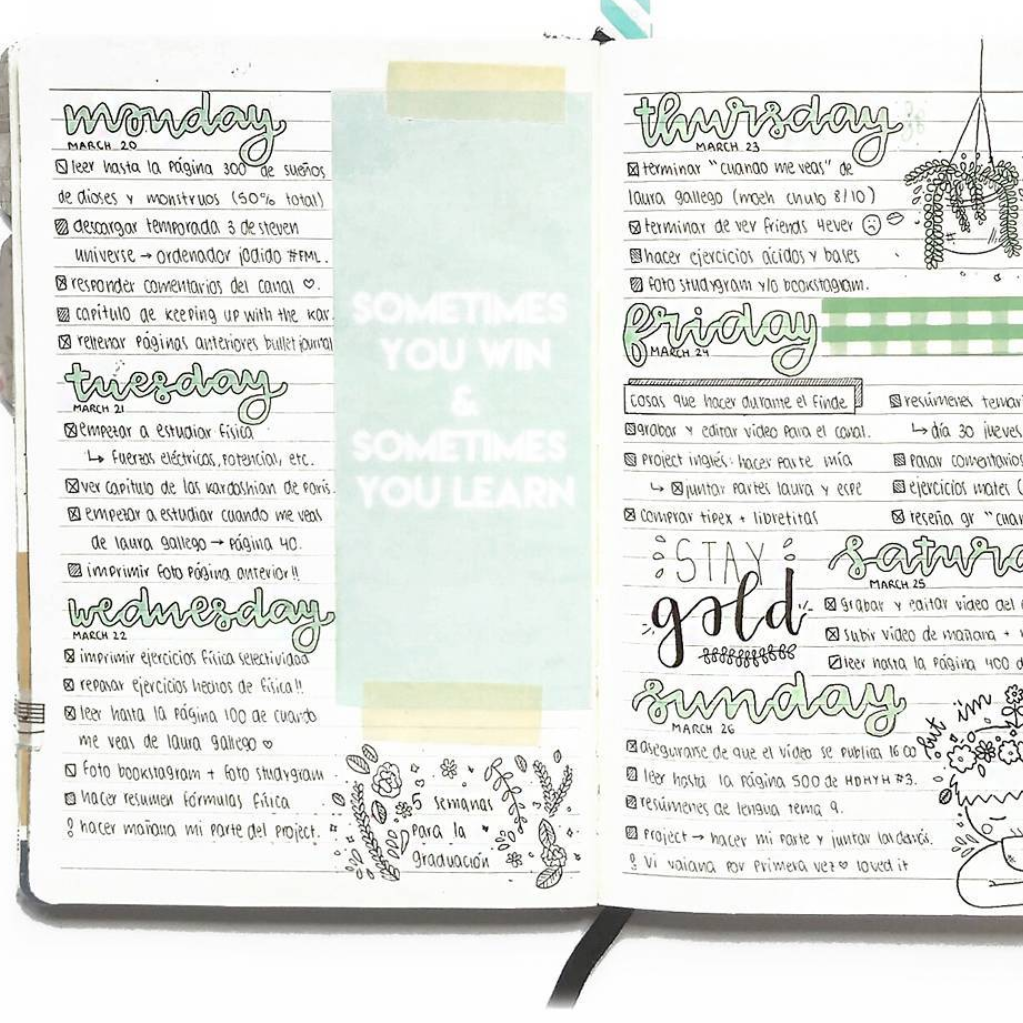 monday
MARCH 20
leer hasta la página 300 de sueños
de dioses y monstruos (50% total)
descargar temporada 3 de steven
universe → ordenador jodido #FML.
responder comentarios del canal ♡.
capítulo de keeping up with the kar.
rellenar páginas anteriores bullet journal
tuesday
MARCH 21
empezar a estudiar física
↳ fuerzas eléctricas, potencial, etc.
ver capítulo de las kardashian de parís.
empezar a estudiar cuando me veas
de laura gallego → página 40.
imprimir foto página anterior!!
wednesday
MARCH 22
imprimir ejercicios física selectividad
repasar ejercicios hechos de física!!
leer hasta la página 100 de cuando
me veas de laura gallego ♡
foto bookstagram + foto studygram
hacer resumen fórmulas física
hacer mañana mi parte del project.
SOMETIMES
YOU WIN
&
SOMETIMES
YOU LEARN
5 semanas
para la
graduación
thursday
MARCH 23
terminar "cuando me veas" de
laura gallego (moeh chulo 8/10)
terminar de ver friends 4ever
hacer ejercicios ácidos y bases
foto studygram y/o bookstagram.
friday
MARCH 24
cosas que hacer durante el finde
grabar y editar vídeo para el canal.
project inglés: hacer parte mía
↳ juntar partes laura y espe
comprar tipex + libretitas
resúmenes
↳ día 30 jueves
pasar comentarios
ejercicios mates
reseña gr "
STAY
gold
satur
MARCH 25
grabar y editar vídeo del
subir vídeo de mañana +
leer hasta la página 400 d
sunday
MARCH 26
asegurarse de que el vídeo se publica 16:00
leer hasta la página 500 de HDHYH #3.
resúmenes de lengua tema 9.
project → hacer mi parte y juntar las demás.
vi vaiana por primera vez ♡ loved it
but i'm